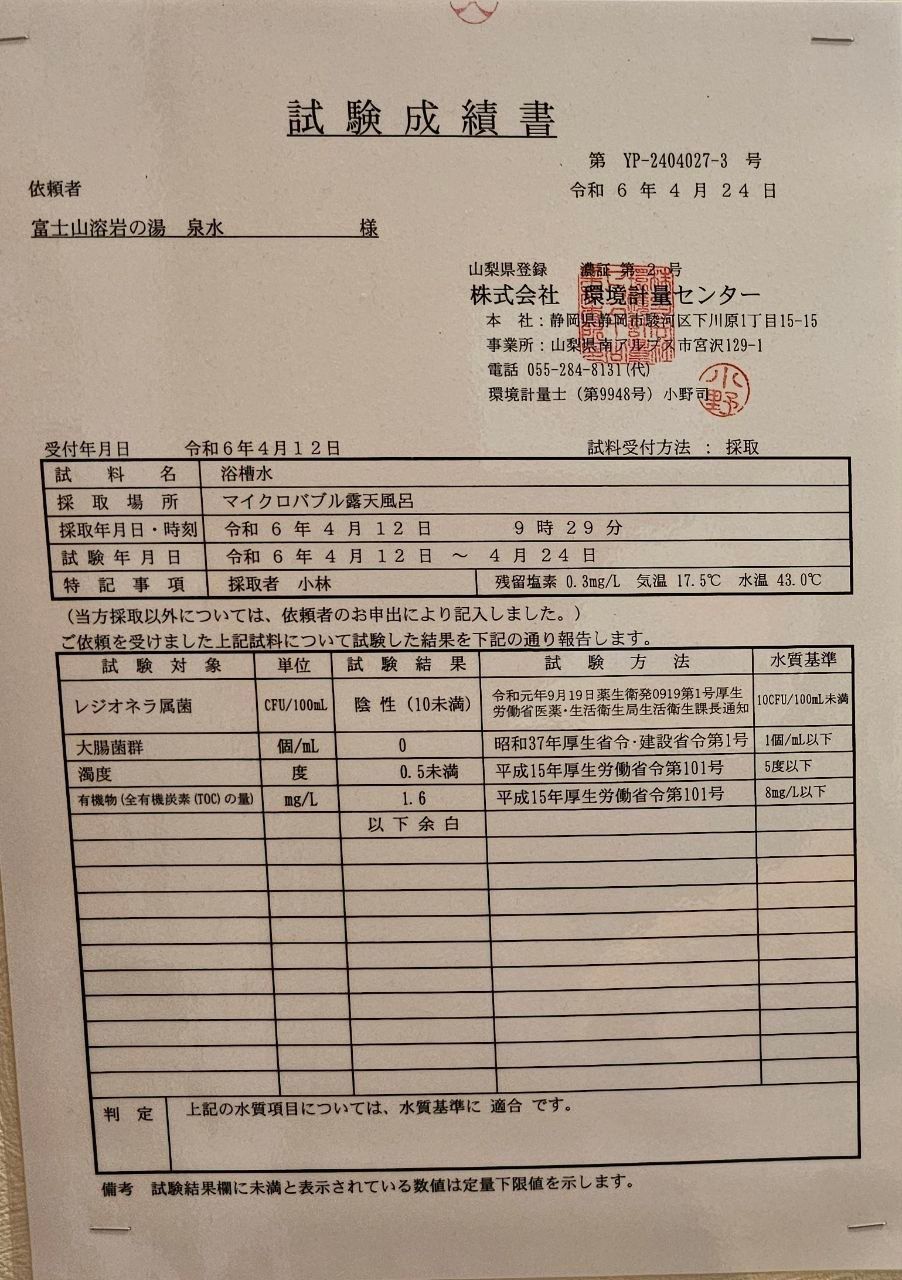 試験成績書
第 YP-2404027-3 号
令和 6 年 4 月 24 日
依頼者
富士山溶岩の湯 泉水 様
山梨県登録 濃証 第 2 号
株式会社 環境計量センター
本 社：静岡県静岡市駿河区下川原1丁目15-15
事業所：山梨県南アルプス市宮沢129-1
電話 055-284-8131(代)
環境計量士（第9948号）小野司
小野
受付年月日 令和６年４月１２日 試料受付方法 ： 採取
試料名 浴槽水
採取場所 マイクロバブル露天風呂
採取年月日・時刻 令和 ６ 年 ４ 月 １２ 日 ９ 時 ２９ 分
試験年月日 令和 ６ 年 ４ 月 １２ 日 ～ ４ 月 ２４ 日
特記事項 採取者 小林 残留塩素 0.3mg/L 気温 17.5℃ 水温 43.0℃
（当方採取以外については、依頼者のお申出により記入しました。）
ご依頼を受けました上記試料について試験した結果を下記の通り報告します。
試験対象 単位 試験結果 試験方法 水質基準
レジオネラ属菌 CFU/100mL 陰性（10未満） 令和元年9月19日薬生衛発0919第1号厚生労働省医薬・生活衛生局生活衛生課長通知 10CFU/100mL未満
大腸菌群 個/mL 0 昭和37年厚生省令・建設省令第1号 1個/mL以下
濁度 度 0.5未満 平成15年厚生労働省令第101号 5度以下
有機物(全有機炭素(TOC)の量) mg/L 1.6 平成15年厚生労働省令第101号 8mg/L以下
以下余白
判 定 上記の水質項目については、水質基準に 適合 です。
備考 試験結果欄に未満と表示されている数値は定量下限値を示します。